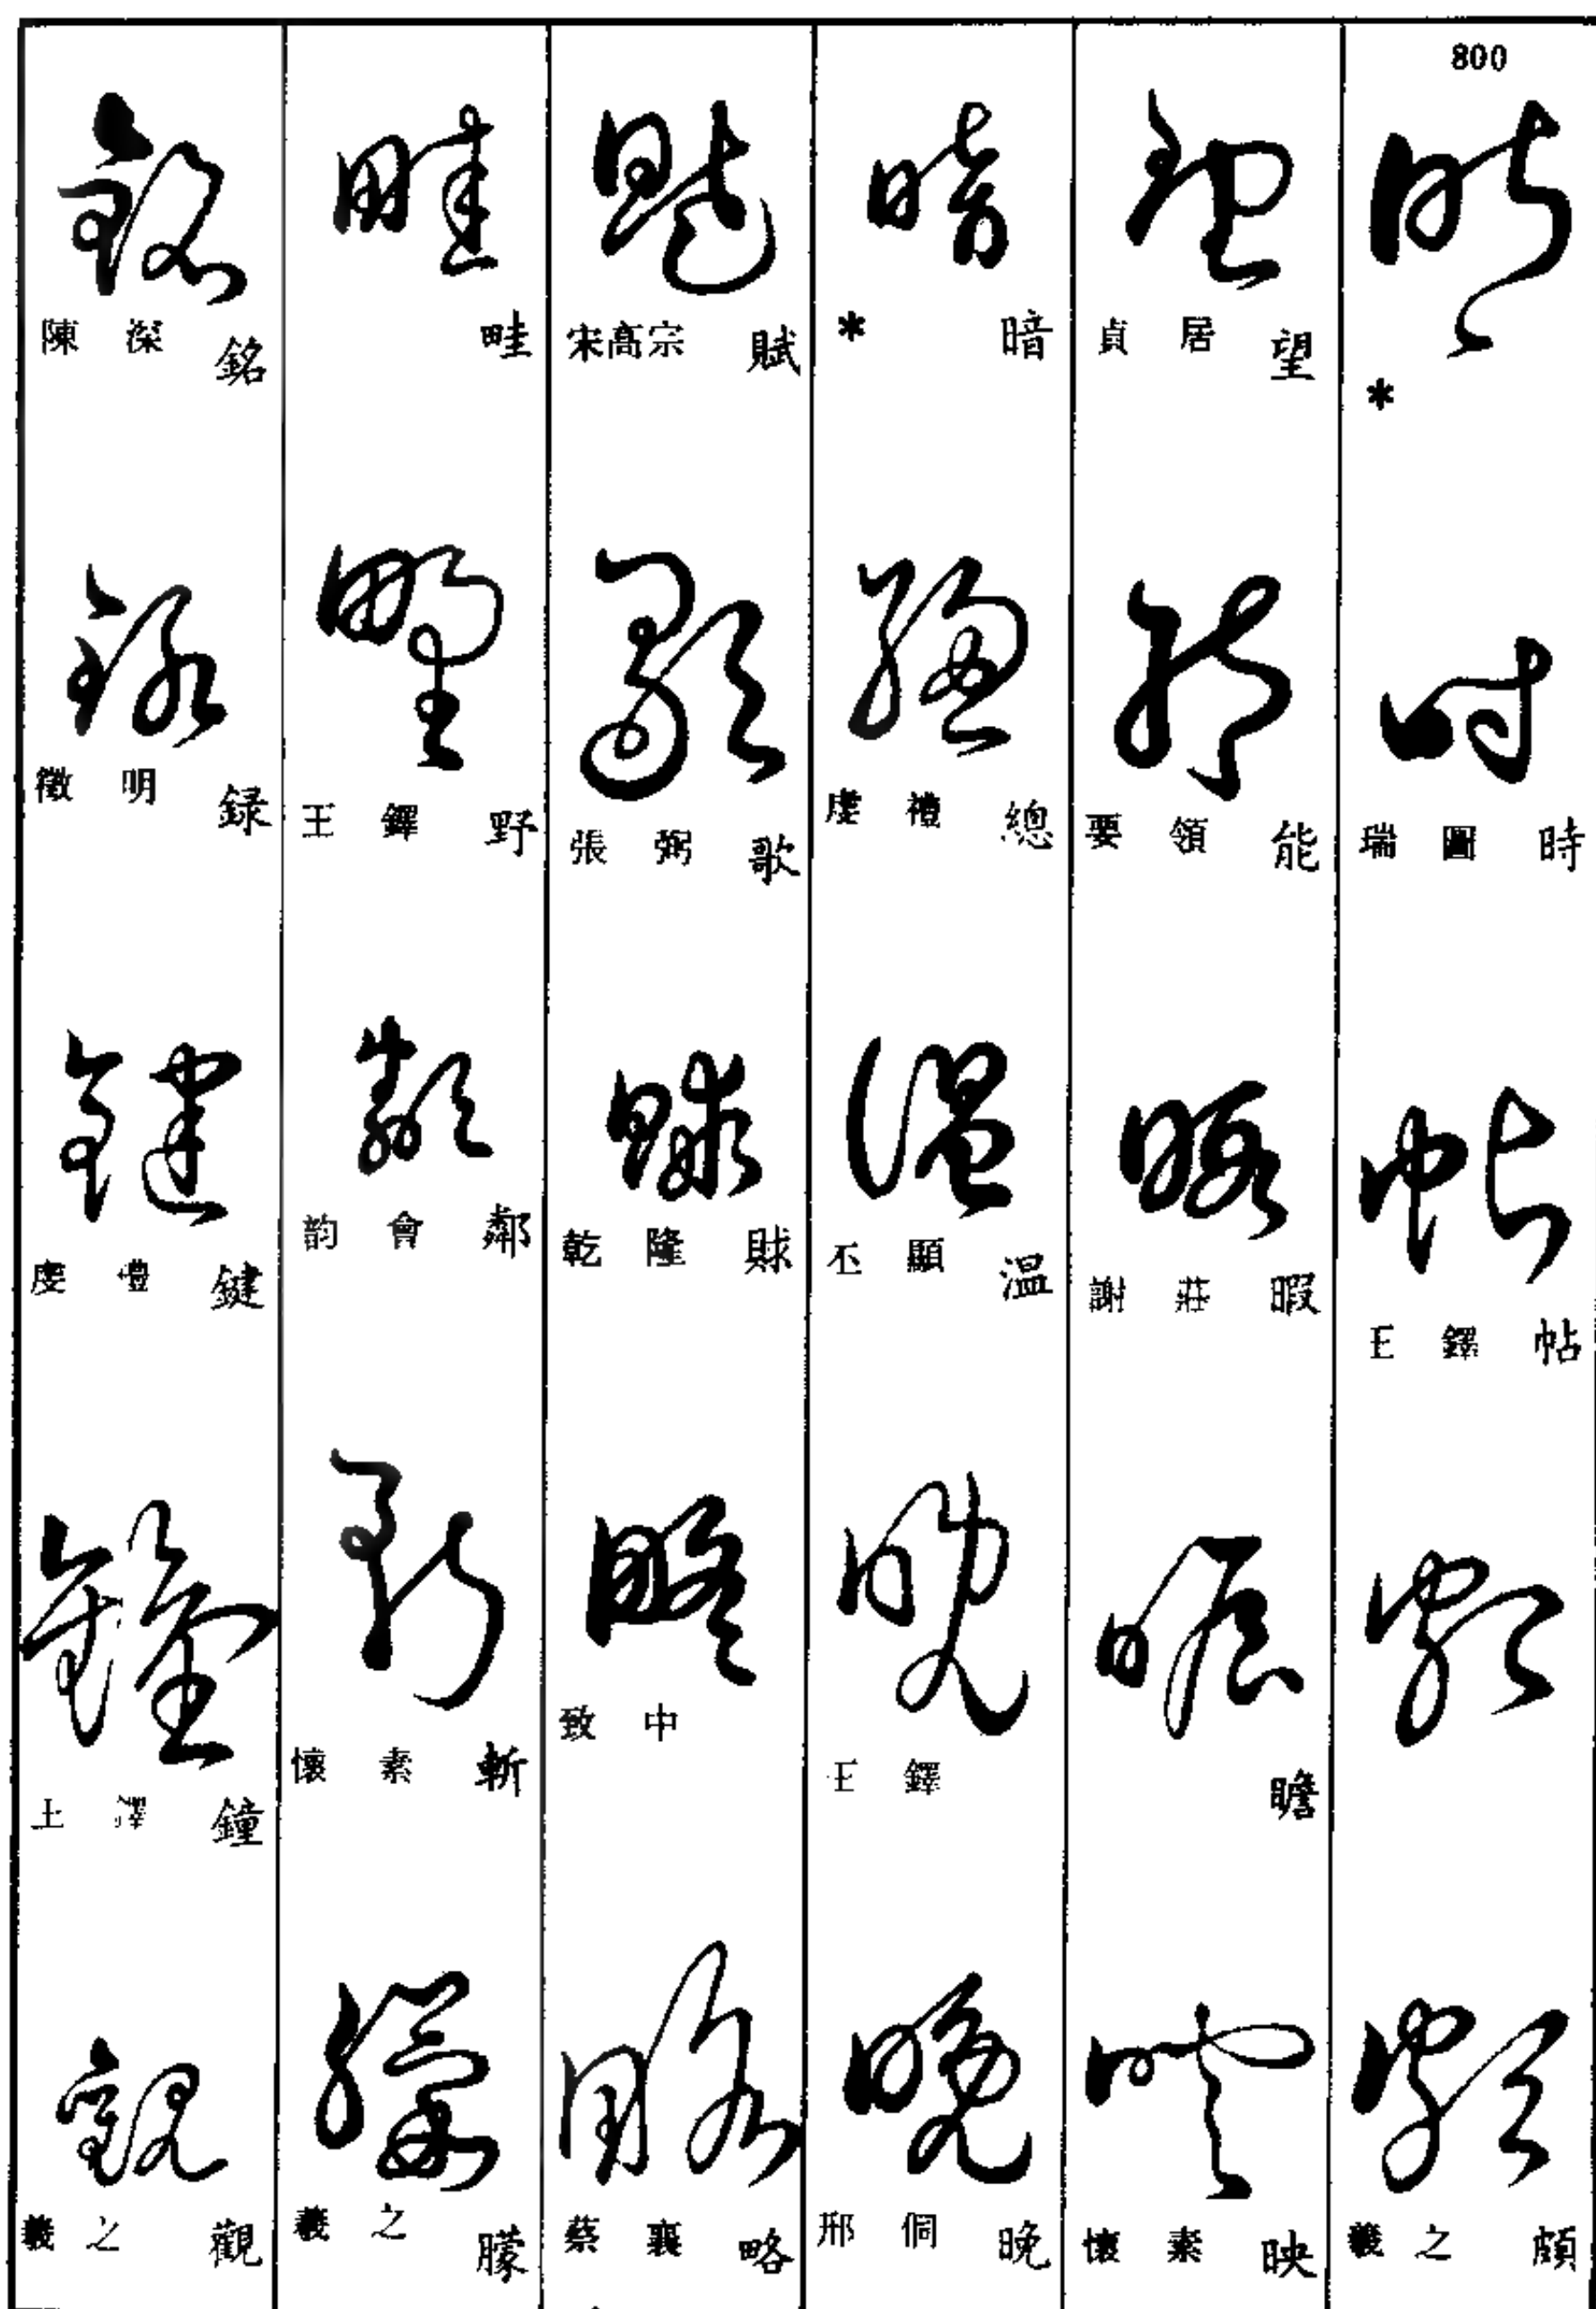 800
*
瑞圖 時
王鐸 帖
羲之 頗
貞居 望
要領 能
謝莊 暇
瞻
懷素 映
* 暗
慶禮 總
丕顯 溫
王鐸
邢侗 晚
宋高宗 賦
張弼 歌
乾隆 賕
致中
蔡襄 略
畦
王鐸 野
韵會 鄰
懷素 斬
羲之 朦
陳深 銘
徵明 録
慶禮 鍵
鐘
羲之 觀